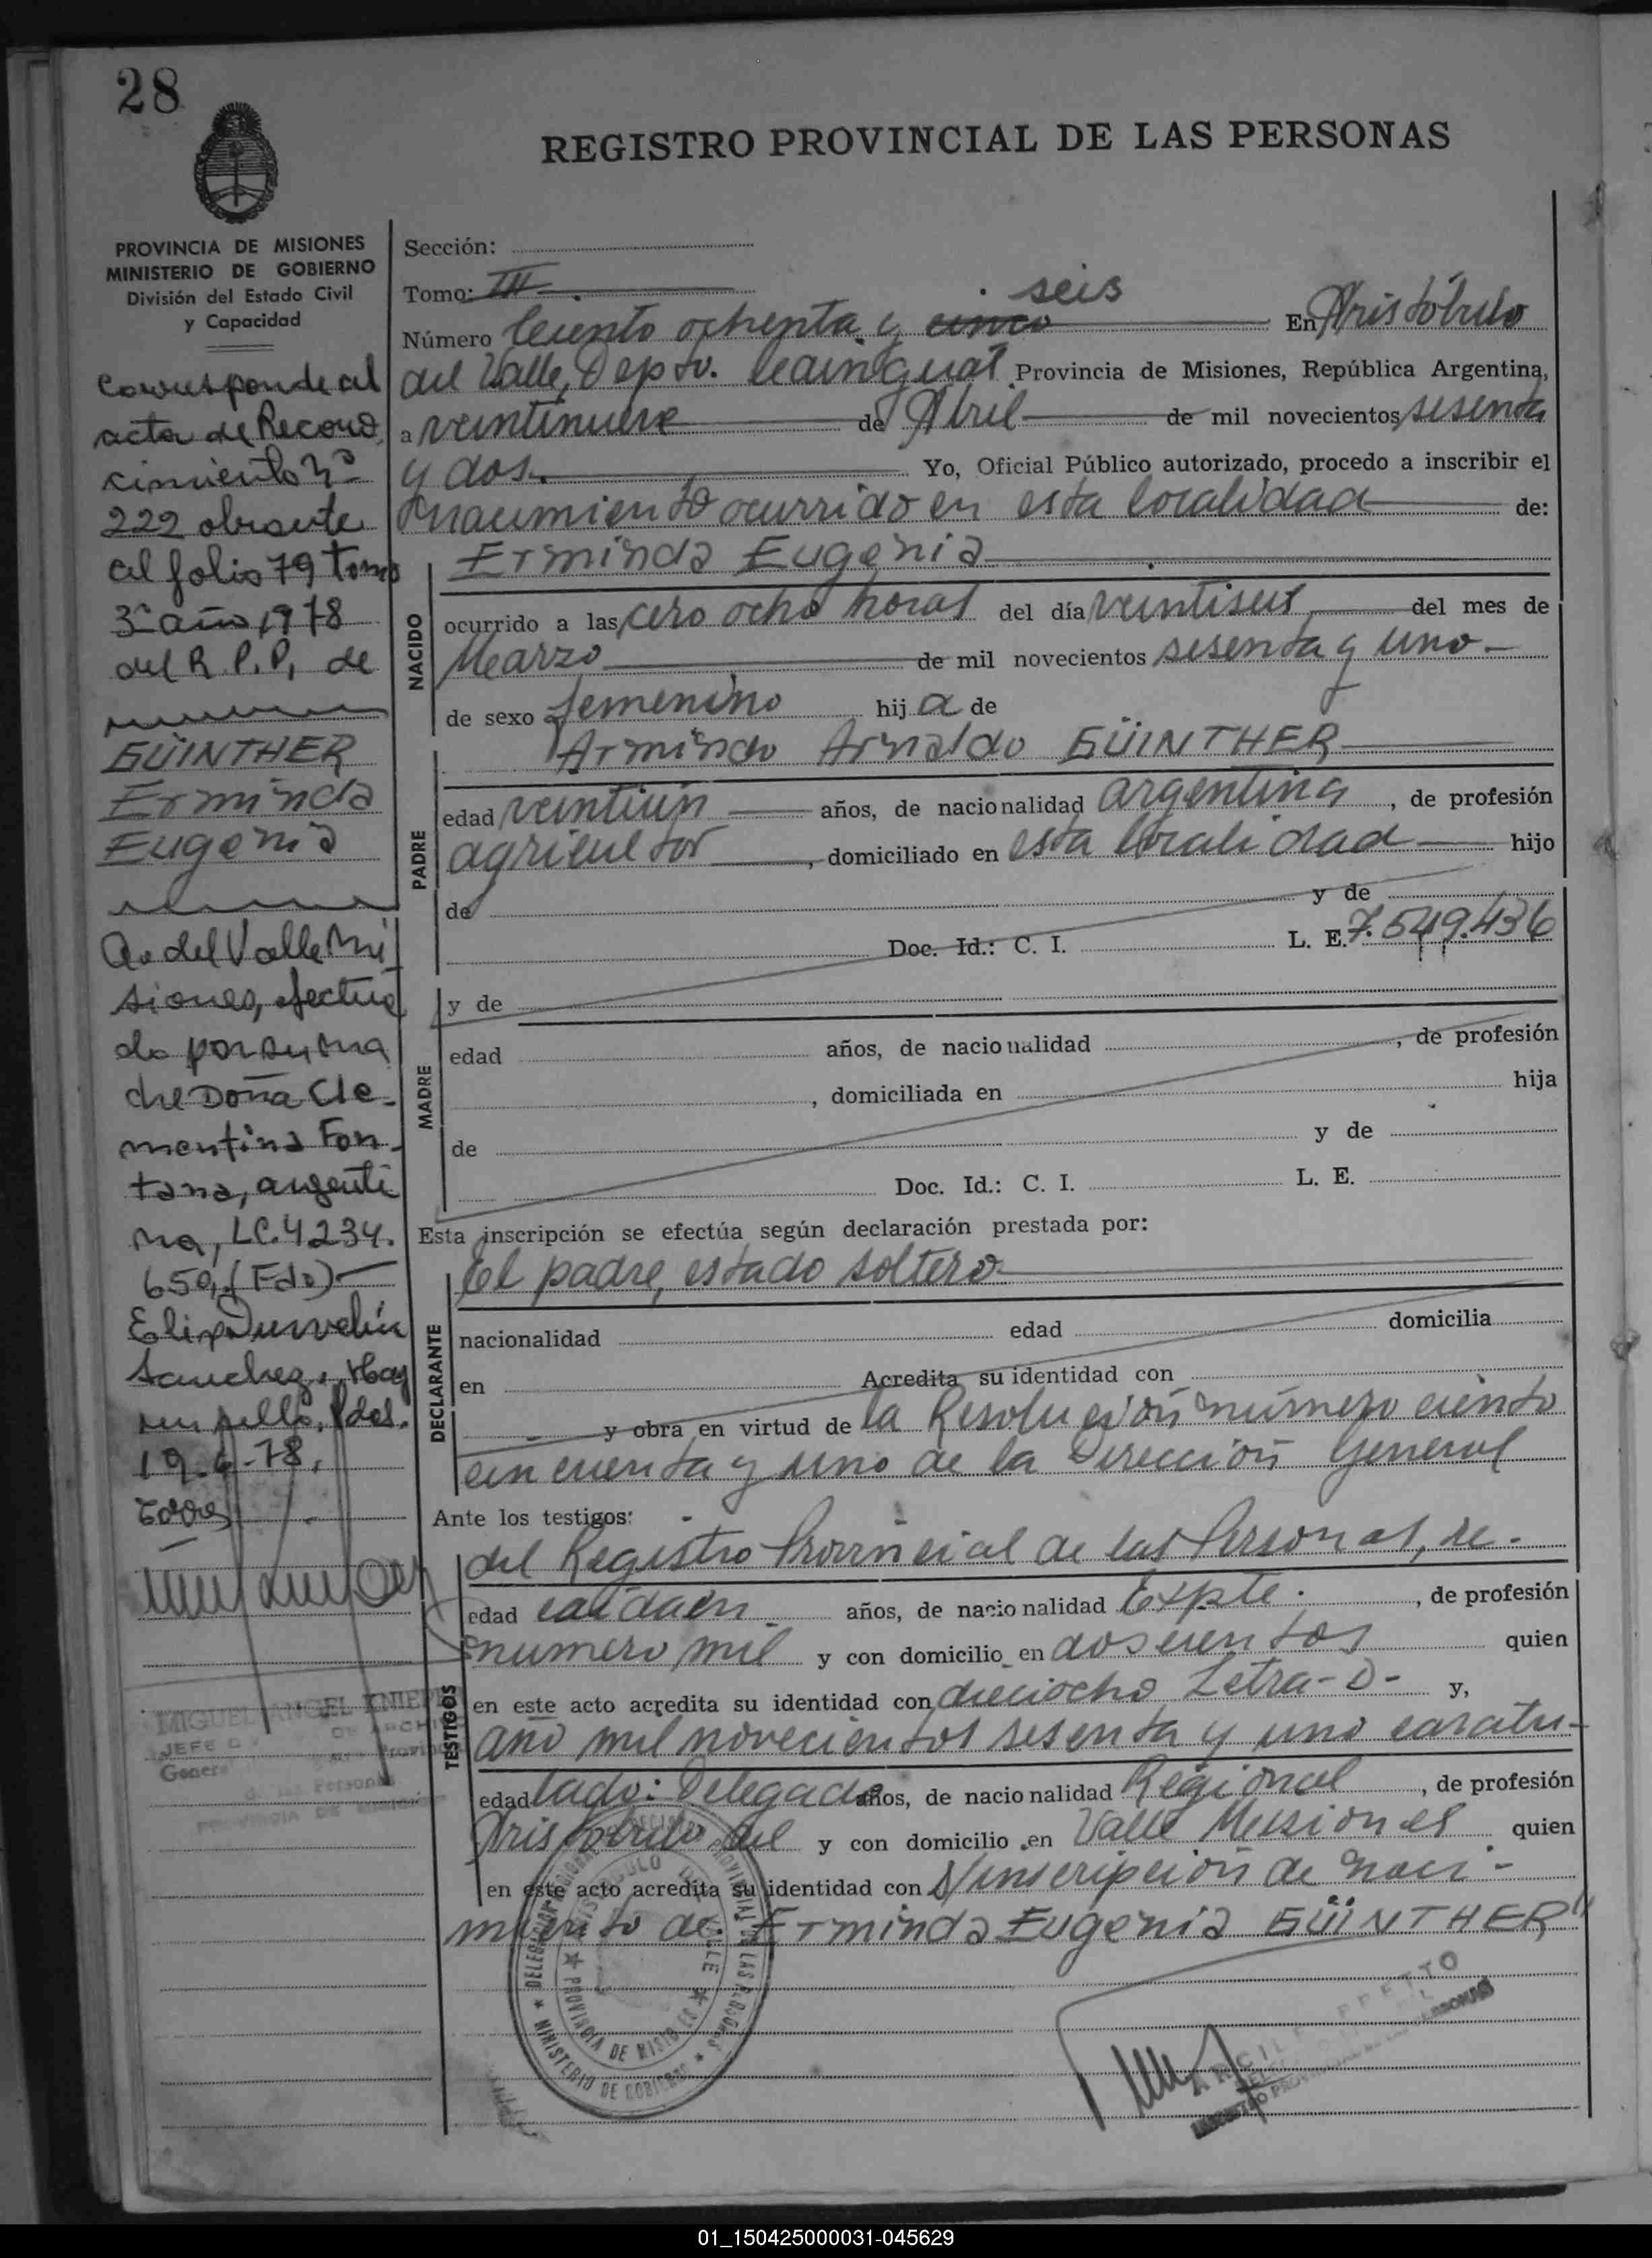 28
REGISTRO PROVINCIAL DE LAS PERSONAS
PROVINCIA DE MISIONES
MINISTERIO DE GOBIERNO
División del Estado Civil
y Capacidad
Corresponde al
acta de Recono
cimiento Nº
222 obrante
al folio 79 tomo
3º año 1978
del R.P.P, de
GÜINTHER
Erminda
Eugenia
Ao del Valle Mi
siones, efectua
do por su ma
dre Doña Cle-
mentina Fon-
tana, argenti
na, LC.4234.
650, (Fdo)
Sanchez, Hay
un sello, Pdas.
19-6-78,
MIGUEL ANGEL KNIEPE
JEFE
ARCHIVO
Genera
de las Personas
PROVINCIA DE MISIONES
Sección:
Tomo: III
seis
Número Ciento ochenta y cinco En Aristóbulo
del Valle, Depto. Cainguas Provincia de Misiones, República Argentina,
a veintinueve de Abril de mil novecientos sesenta
y dos. Yo, Oficial Público autorizado, procedo a inscribir el
nacimiento ocurrido en esta localidad de:
Erminda Eugenia
NACIDO
ocurrido a las cero ocho horas del día veintiseis del mes de
Marzo de mil novecientos sesenta y uno
de sexo femenino hij a de
Armindo Arnaldo GÜINTHER
PADRE
edad veintiún años, de nacionalidad argentina, de profesión
agricultor, domiciliado en esta localidad hijo
de y de
Doc. Id.: C. I. L. E. 7.549.436
MADRE
y de
edad años, de nacionalidad, de profesión
, domiciliada en hija
de y de
Doc. Id.: C. I. L. E.
Esta inscripción se efectúa según declaración prestada por:
El padre, estado soltero
DECLARANTE
nacionalidad edad domicilia
en Acredita su identidad con
y obra en virtud de la Resolución número ciento
cincuenta y uno de la Dirección General
Ante los testigos:
del Registro Provincial de las Personas, re-
TESTIGOS
edad caídaen años, de nacionalidad Expte. , de profesión
numero mil y con domicilio en doscientos quien
en este acto acredita su identidad con dieciocho Letra-D- y,
año mil novecientos sesenta y uno caratu-
edad lado: Delegado años, de nacionalidad Regional, de profesión
Aristobulo del y con domicilio en Valle Misiones quien
en este acto acredita su identidad con S/inscripción de naci-
miento de: Erminda Eugenia GÜINTHER"
ARISTOBULO DEL VALLE
PROVINCIA DE MISIONES
MINISTERIO DE GOBIERNO
01_150425000031-045629